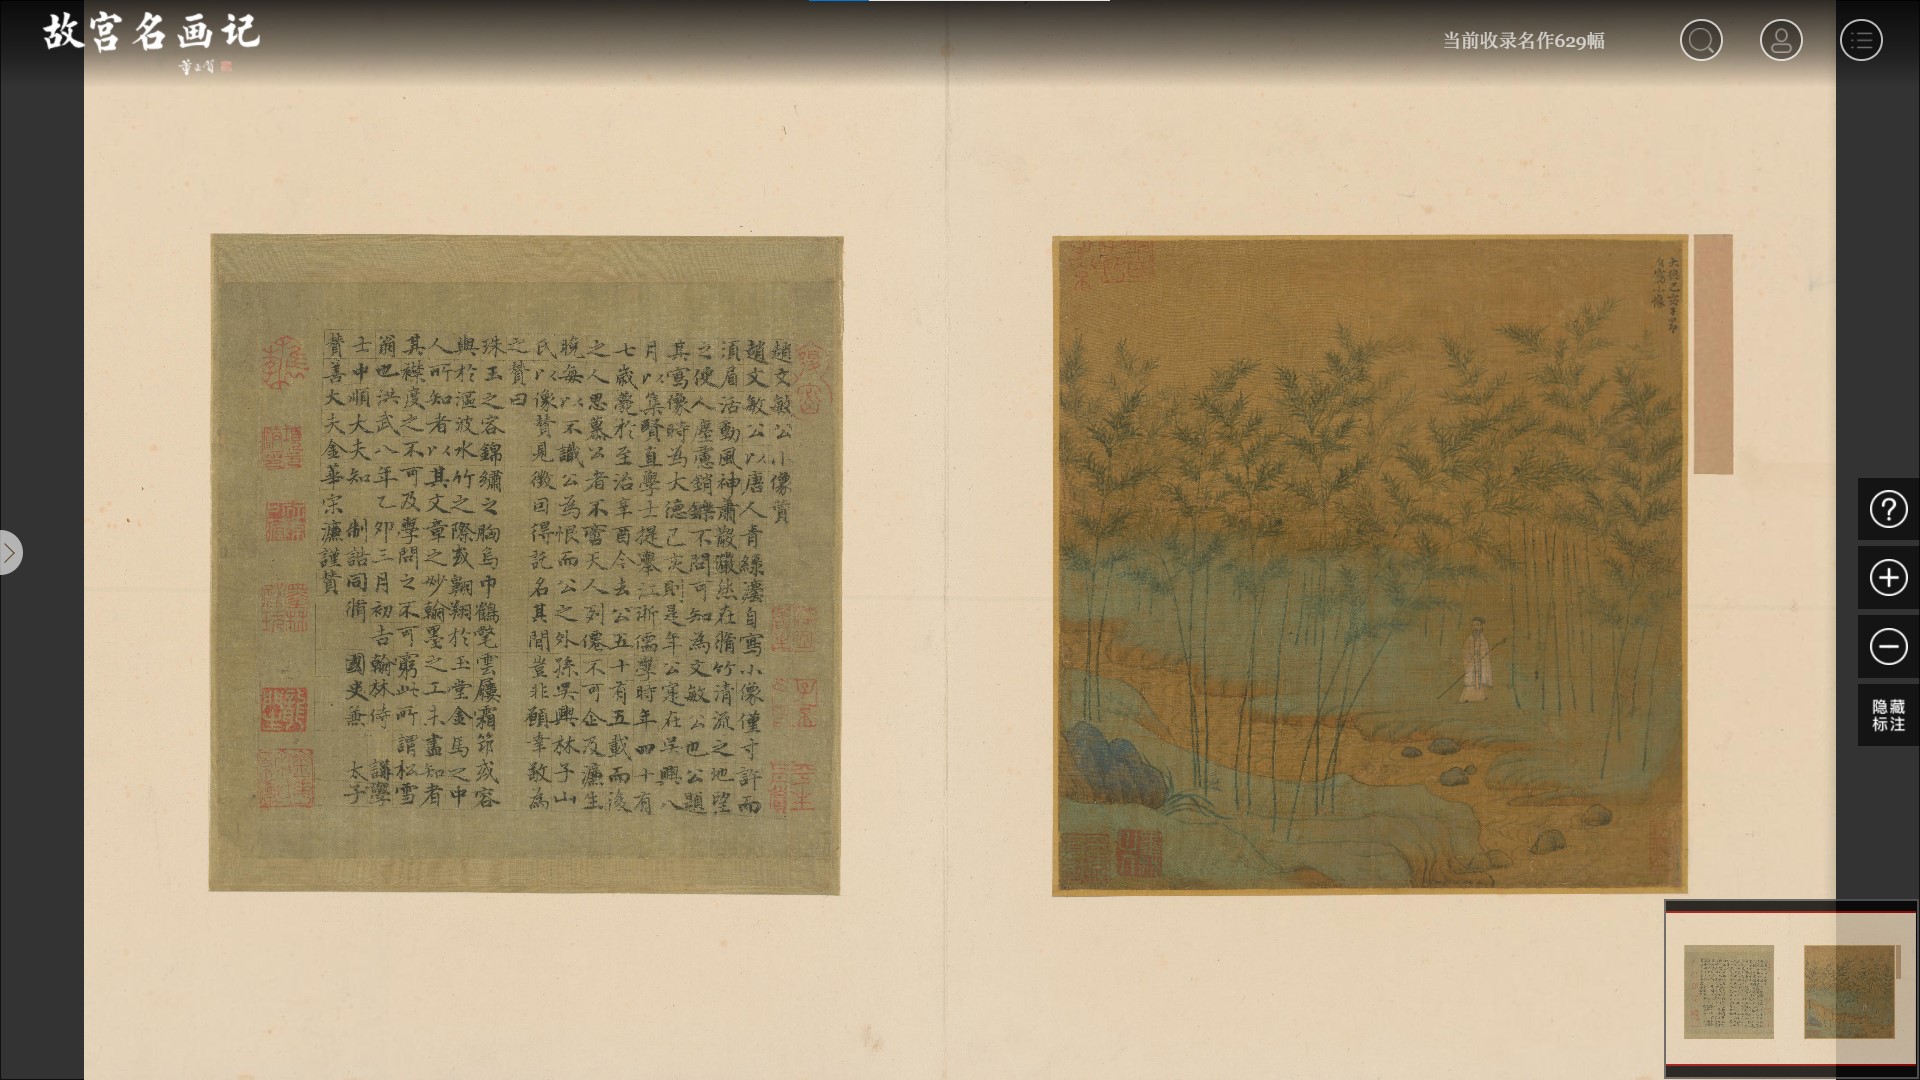 故宫名画记
当前收录名作629幅
大德己亥子昂
自寫小像
趙文敏公小像贊
趙文敏公以唐人青綠法自寫小像僅寸許而
須眉活動風神蕭散儼然在脩竹清流之地望
之使人塵慮銷鑠不問可知為文敏公也公題
其寫像時為大德己亥則是年公寔在吳興八
月以集賢直學士提舉江浙儒學時年四十有
七歲薨於至治辛酉今去公五十有五載而後
之人思慕公者不啻天人列僊不可企及濂生
晚每以不識公為恨而公之外孫吳興林子山
氏以像贊見徵因得託名其間豈非願幸敬為
之贊曰
珠玉之容錦繡之胸烏巾鶴氅雲屨霜筇或容
與於漚波水竹之際或翱翔於玉堂金馬之中
人所知者以其文章之妙翰墨之工未盡知者
其襟度之不可及學問之不可窮此所謂松雪
翁也洪武八年乙卯三月初吉翰林侍講學
士中順大夫知制誥同脩國史兼太子
贊善大夫金華宋濂謹贊
隐藏
标注